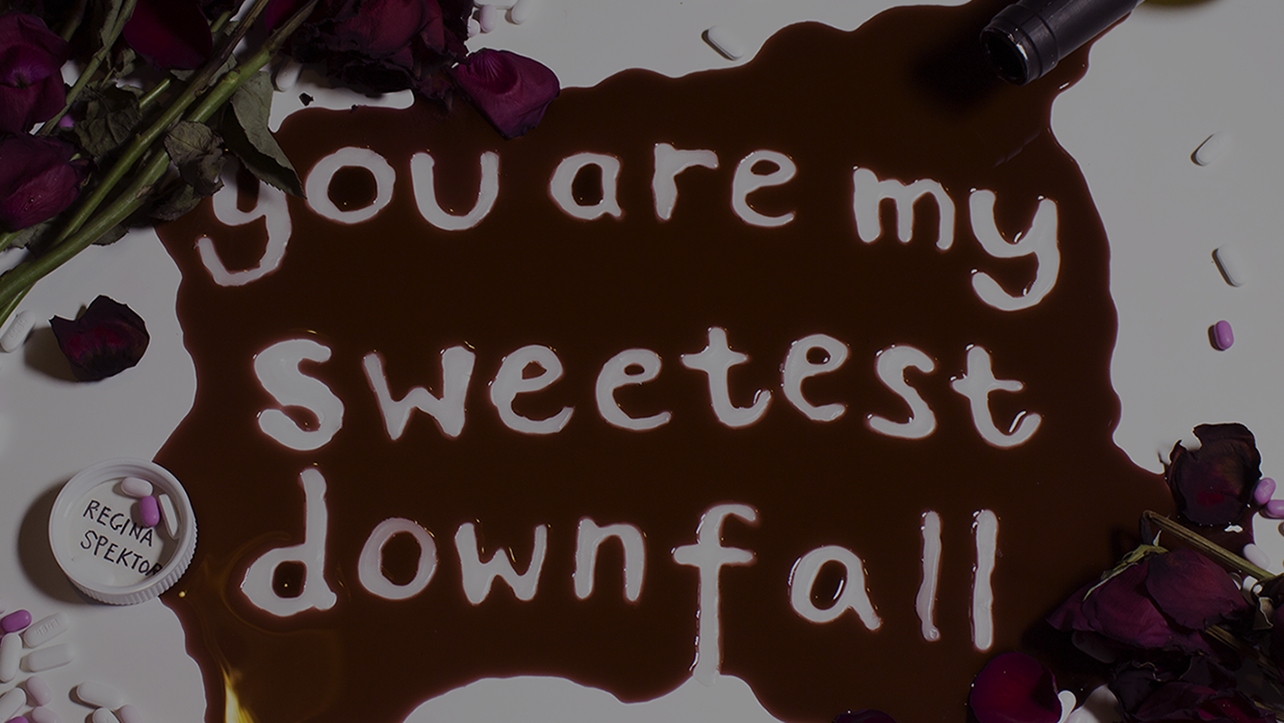 you are my
sweetest
downfall
REGINA
SPEKTOR